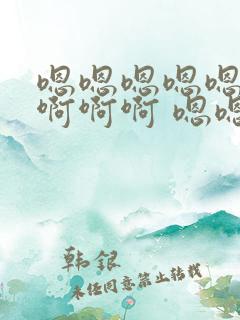 嗯嗯嗯嗯嗯
啊啊啊 嗯嗯
韩银
未经同意禁止转载